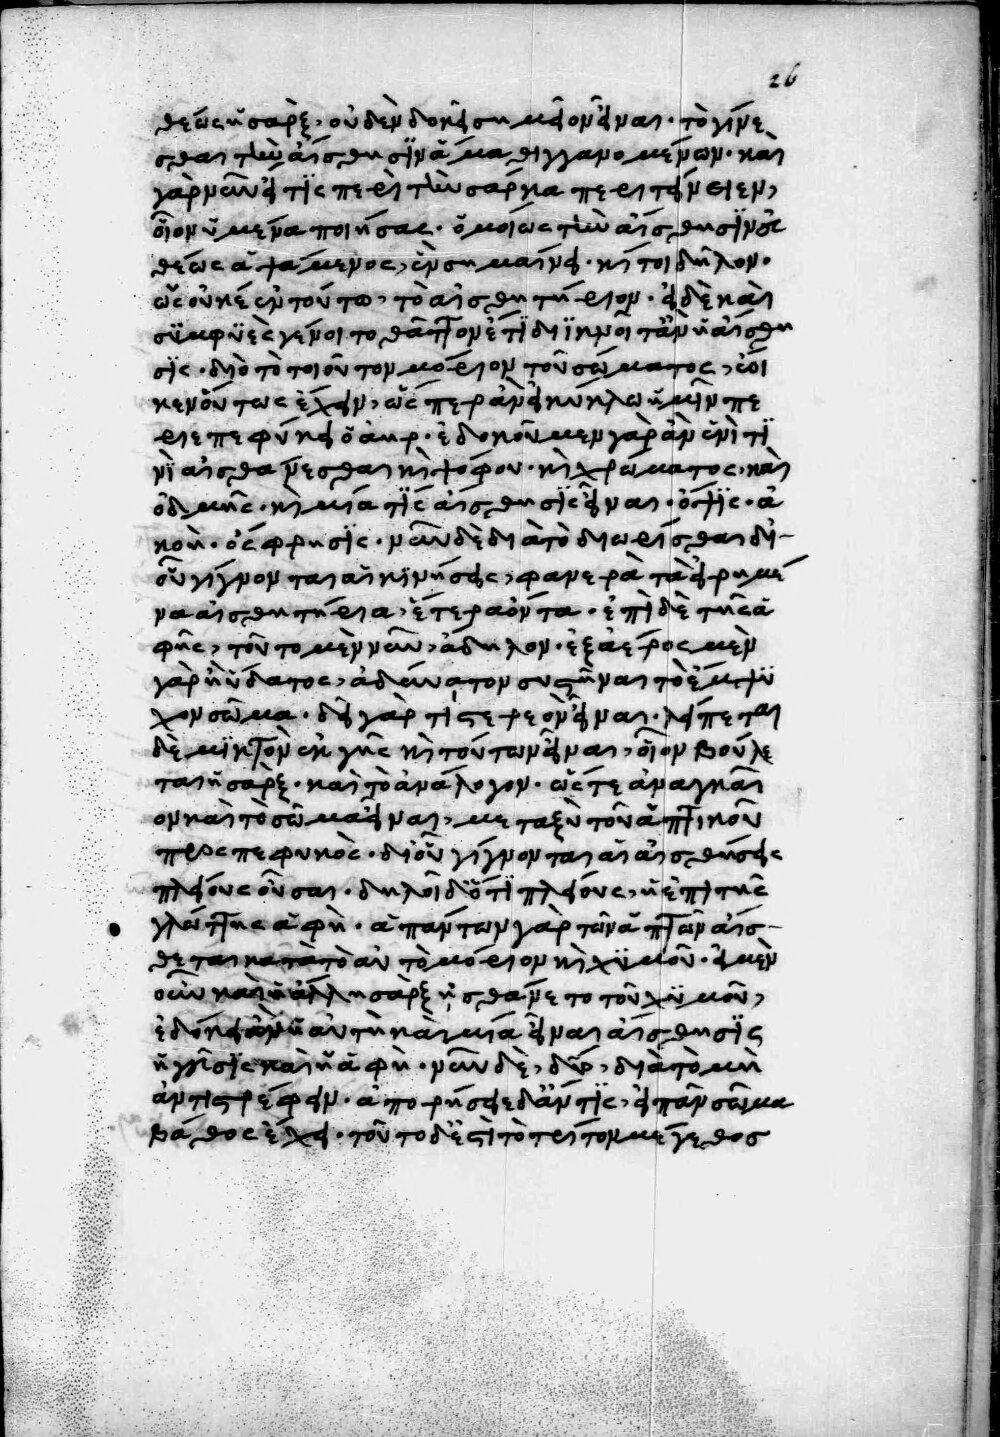 26
θέως ἡ σάρξ, οὐδὲν δοκεῖ σημεῖον εἶναι· τὸ γίνε
σθαι τὴν αἴσθησιν ἅμα θιγγανομένων· καὶ
γὰρ νῦν εἴ τις περὶ τὴν σάρκα περιτείνειεν,
οἷον ὑμένα ποιήσας· ὁμοίως τὴν αἴσθησιν εὐ
θέως ἁψάμενος, ἐνσημαίνει· καίτοι δῆλον·
ὡς οὐκ ἐν τούτω, τὸ αἰσθητήριον· εἰ δὲ καὶ
συμφυὲς γένοιτο θᾶττον ἔτι διϊκνοῖτ' ἂν ἡ αἴσθη
σις· διὸ τὸ τοιοῦτον μόριον τοῦ σώματος, ἔοι
κεν οὕτως ἔχειν, ὥσπερ ἂν εἰ κύκλω ἡμῖν πε
ριεπεφύκει ὁ ἀηρ· ἐδοκοῦμεν γὰρ ἂν ἑνί τι
νι αἰσθάνεσθαι καὶ ψόφου· καὶ χρώματος, καὶ
ὀδμῆς· καὶ μία τις αἴσθησις εἶναι· ὄψις· ἀ
κοή· ὄσφρησις· νῦν δὲ διὰ τὸ διωρίσθαι δι'
οὗ γίγνονται αἱ κινήσεις, φανερὰ τὰ εἰρημέ
να αἰσθητήρια, ἕτερα ὄντα· ἐπὶ δὲ τῆς ἁ
φῆς, τοῦτο μὲν νῦν, ἄδηλον· ἐξ ἀέρος μὲν
γὰρ ἢ ὕδατος, ἀδύνατον συστῆναι τὸ ἔμψυ
χον σῶμα· δεῖ γάρ τι στερεὸν εἶναι· λείπεται
δὲ μικτὸν ἐκ γῆς καὶ τούτων εἶναι, οἷον βούλε
ται ἡ σάρξ· καὶ τὸ ἀνάλογον· ὥστε ἀναγκαῖ
ον καὶ τὸ σῶμα εἶναι, μεταξὺ τοῦ ἁπτικοῦ
προσπεφυκὸς· δι' οὗ γίγνονται αἱ αἰσθήσεις
πλείους οὖσαι· δηλοῖ δ' ὅτι πλείους, ἡ ἐπὶ τῆς
γλώττης ἁφή· ἁπάντων γὰρ τῶν ἁπτῶν αἰσ
θεται κατὰ τὸ αὐτὸ μόριον καὶ χυμοῦ· εἰ μὲν
οὖν καὶ ἡ ἄλλη σὰρξ ἠσθάνετο τοῦ χυμοῦ,
ἐδόκει ἂν ἡ αὐτὴ καὶ μία εἶναι αἴσθησις
ἡ γεῦσις καὶ ἡ ἁφή· νῦν δὲ, δύο, διὰ τὸ μὴ
ἀντιστρέφειν· ἀπορήσειε δ' ἄν τις, εἰ πᾶν σῶμα
βάθος ἔχει· τοῦτο δ' ἐστὶ τὸ τρίτον μέγεθος